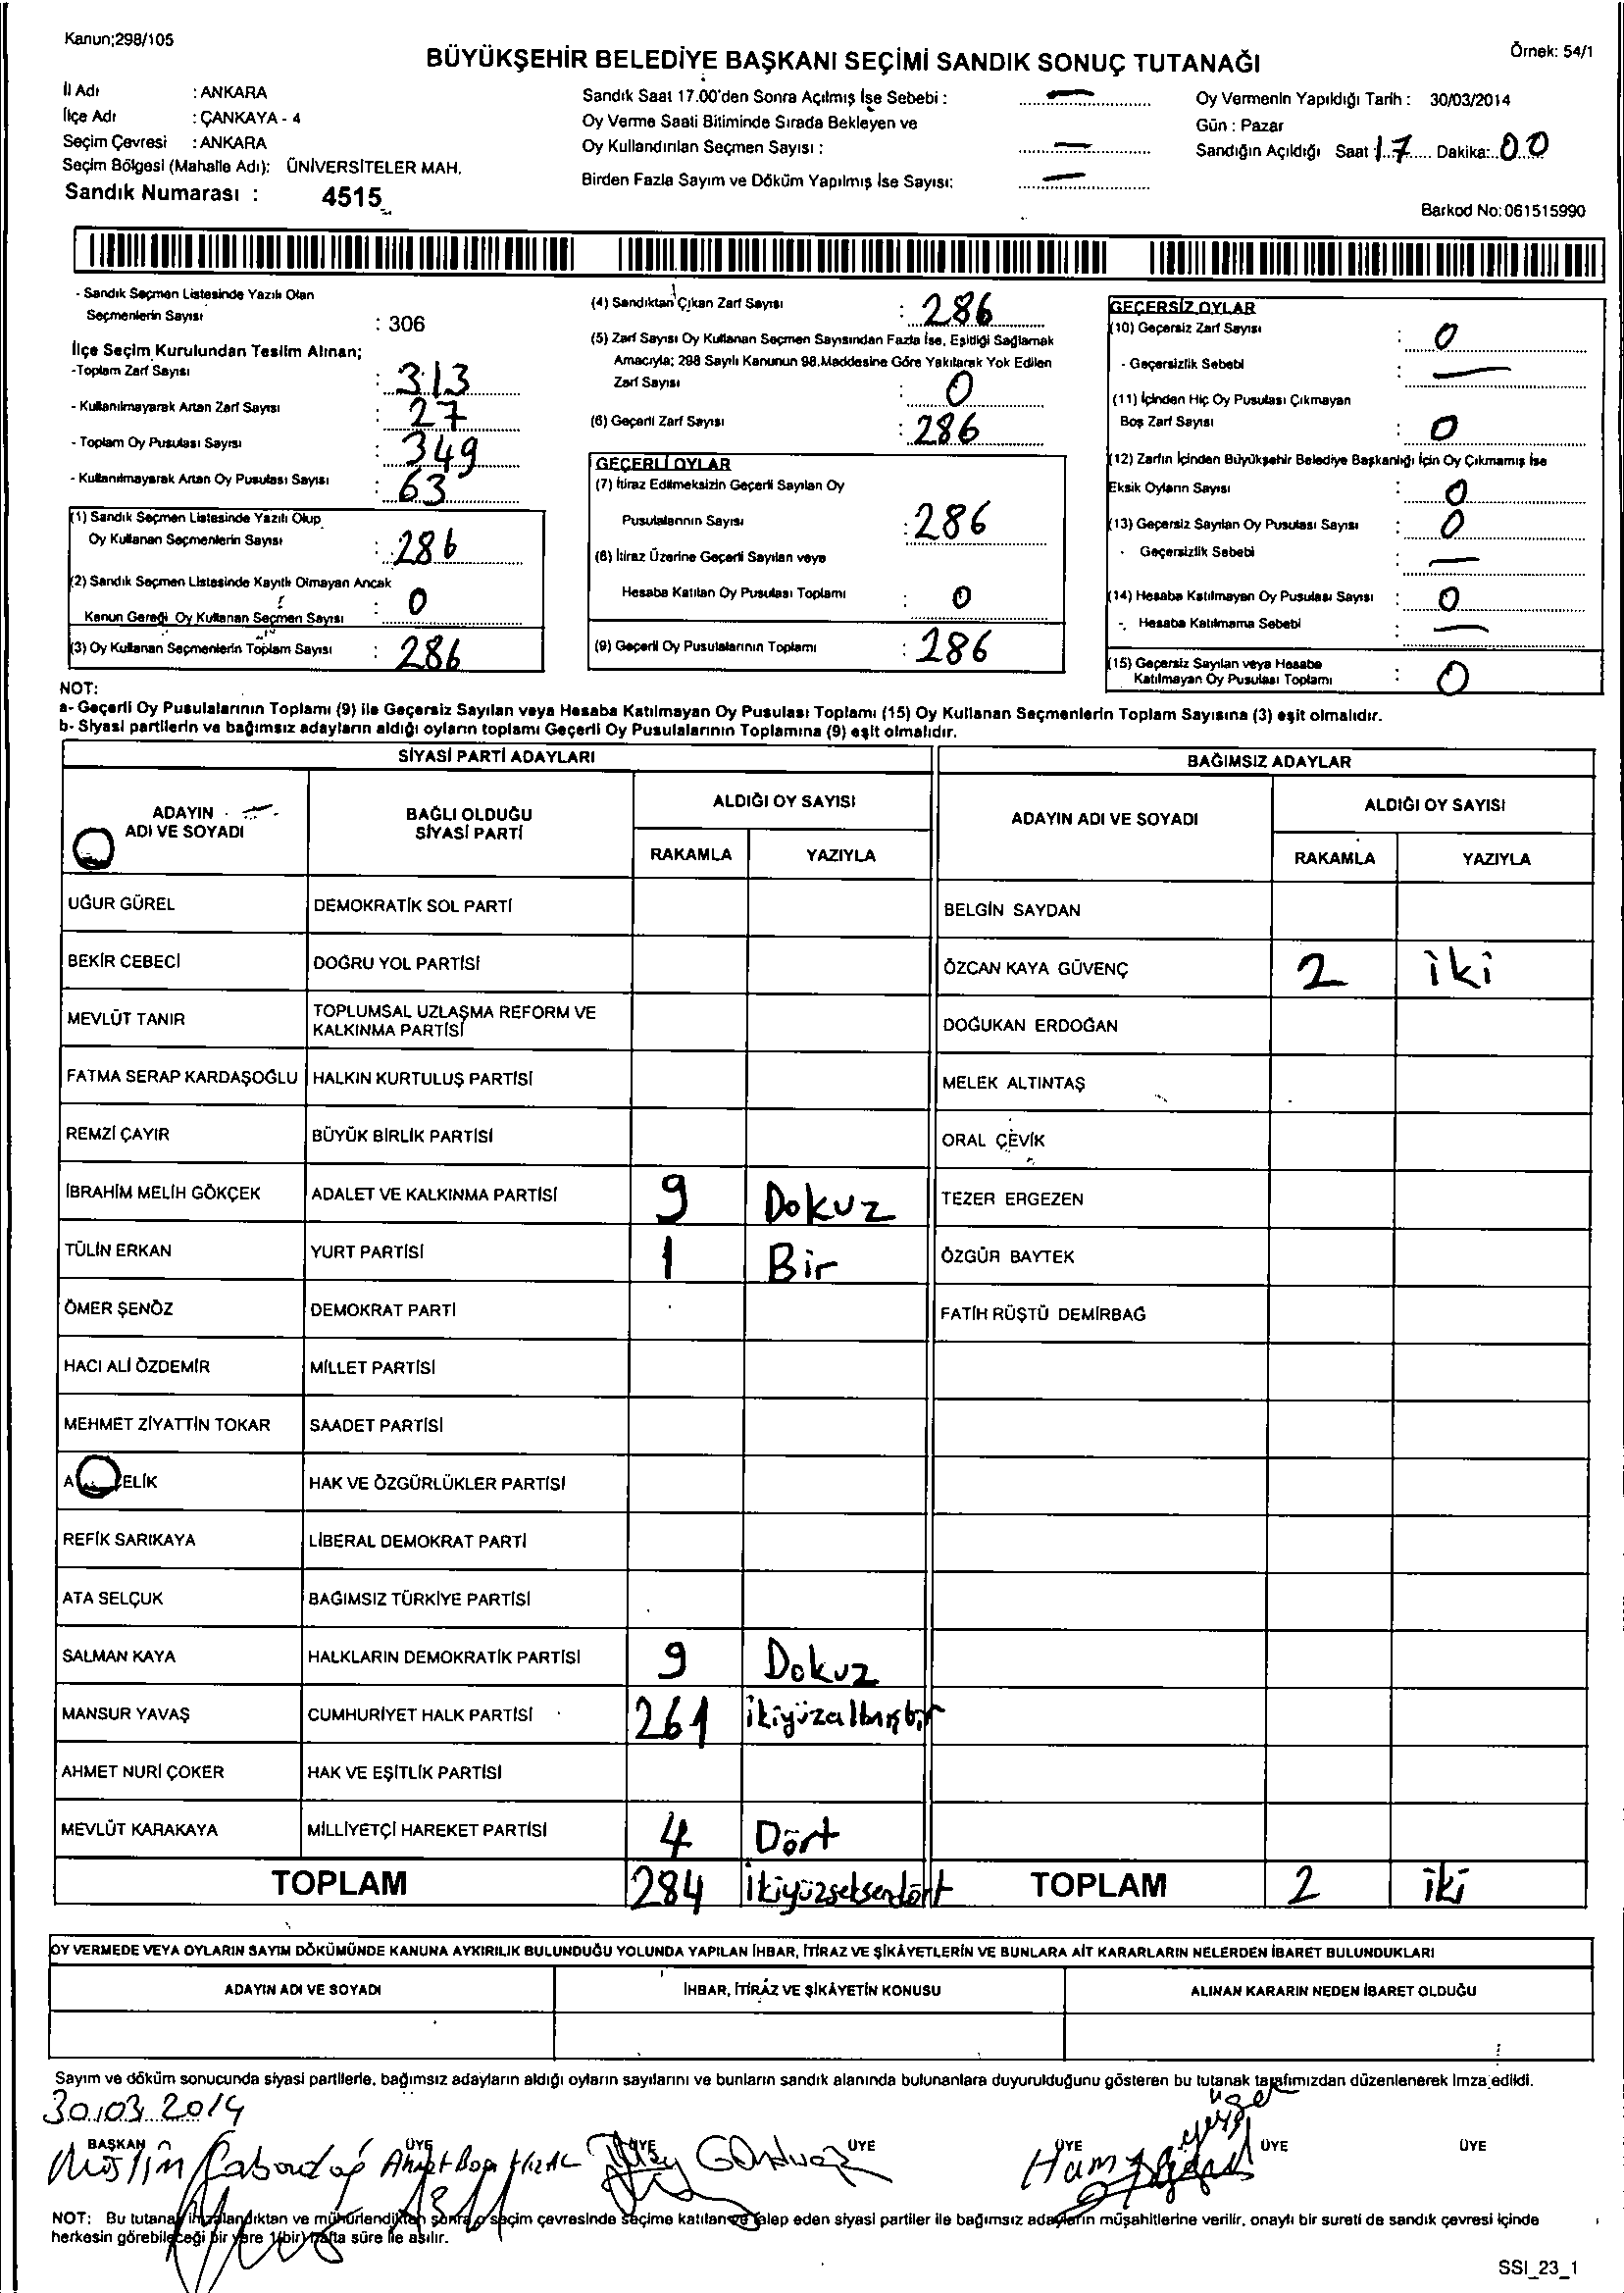 Kanun;298/105
Örnek: 54/1
BÜYÜKŞEHİR BELEDİYE BAŞKANI SEÇİMİ SANDIK SONUÇ TUTANAĞI
İl Adı : ANKARA
İlçe Adı : ÇANKAYA - 4
Seçim Çevresi : ANKARA
Seçim Bölgesi (Mahalle Adı): ÜNİVERSİTELER MAH.
Sandık Numarası : 4515
Sandık Saat 17.00'den Sonra Açılmış İse Sebebi : —
Oy Verme Saati Bitiminde Sırada Bekleyen ve
Oy Kullandırılan Seçmen Sayısı : —
Birden Fazla Sayım ve Döküm Yapılmış İse Sayısı: —
Oy Vermenin Yapıldığı Tarih : 30/03/2014
Gün : Pazar
Sandığın Açıldığı Saat : 17 Dakika: 00
Barkod No: 061515990
- Sandık Seçmen Listesinde Yazılı Olan
Seçmenlerin Sayısı : 306
İlçe Seçim Kurulundan Teslim Alınan;
-Toplam Zarf Sayısı : 313
- Kullanılmayarak Artan Zarf Sayısı : 27
- Toplam Oy Pusulası Sayısı : 349
- Kullanılmayarak Artan Oy Pusulası Sayısı : 63
(1) Sandık Seçmen Listesinde Yazılı Olup
Oy Kullanan Seçmenlerin Sayısı : 286
(2) Sandık Seçmen Listesinde Kayıtlı Olmayan Ancak
Kanun Gereği Oy Kullanan Seçmen Sayısı : 0
(3) Oy Kullanan Seçmenlerin Toplam Sayısı : 286
(4) Sandıktan Çıkan Zarf Sayısı : 286
(5) Zarf Sayısı Oy Kullanan Seçmen Sayısından Fazla İse, Eşitliği Sağlamak
Amacıyla; 298 Sayılı Kanunun 98.Maddesine Göre Yakılarak Yok Edilen
Zarf Sayısı : 0
(6) Geçerli Zarf Sayısı : 286
GEÇERLİ OYLAR
(7) İtiraz Edilmeksizin Geçerli Sayılan Oy
Pusulalarının Sayısı : 286
(8) İtiraz Üzerine Geçerli Sayılan veya
Hesaba Katılan Oy Pusulası Toplamı : 0
(9) Geçerli Oy Pusulalarının Toplamı : 286
GEÇERSİZ OYLAR
(10) Geçersiz Zarf Sayısı : 0
- Geçersizlik Sebebi : —
(11) İçinden Hiç Oy Pusulası Çıkmayan
Boş Zarf Sayısı : 0
(12) Zarfın İçinden Büyükşehir Belediye Başkanlığı İçin Oy Çıkmamış İse
Eksik Oyların Sayısı : 0
(13) Geçersiz Sayılan Oy Pusulası Sayısı : 0
- Geçersizlik Sebebi : —
(14) Hesaba Katılmayan Oy Pusulası Sayısı : 0
- Hesaba Katılmama Sebebi : —
(15) Geçersiz Sayılan veya Hesaba
Katılmayan Oy Pusulası Toplamı : 0
NOT:
a- Geçerli Oy Pusulalarının Toplamı (9) ile Geçersiz Sayılan veya Hesaba Katılmayan Oy Pusulası Toplamı (15) Oy Kullanan Seçmenlerin Toplam Sayısına (3) eşit olmalıdır.
b- Siyasi partilerin ve bağımsız adayların aldığı oyların toplamı Geçerli Oy Pusulalarının Toplamına (9) eşit olmalıdır.
SİYASİ PARTİ ADAYLARI
BAĞIMSIZ ADAYLAR
ADAYIN
ADI VE SOYADI
BAĞLI OLDUĞU
SİYASİ PARTİ
ALDIĞI OY SAYISI
RAKAMLA YAZIYLA
ADAYIN ADI VE SOYADI
ALDIĞI OY SAYISI
RAKAMLA YAZIYLA
UĞUR GÜREL DEMOKRATİK SOL PARTİ BELGİN SAYDAN
BEKİR CEBECİ DOĞRU YOL PARTİSİ ÖZCAN KAYA GÜVENÇ 2 iki
MEVLÜT TANIR TOPLUMSAL UZLAŞMA REFORM VE
KALKINMA PARTİSİ DOĞUKAN ERDOĞAN
FATMA SERAP KARDAŞOĞLU HALKIN KURTULUŞ PARTİSİ MELEK ALTINTAŞ
REMZİ ÇAYIR BÜYÜK BİRLİK PARTİSİ ORAL ÇEVİK
İBRAHİM MELİH GÖKÇEK ADALET VE KALKINMA PARTİSİ 9 Dokuz TEZER ERGEZEN
TÜLİN ERKAN YURT PARTİSİ 1 Bir ÖZGÜR BAYTEK
ÖMER ŞENÖZ DEMOKRAT PARTİ FATİH RÜŞTÜ DEMİRBAĞ
HACI ALİ ÖZDEMİR MİLLET PARTİSİ
MEHMET ZİYATTİN TOKAR SAADET PARTİSİ
A ELİK HAK VE ÖZGÜRLÜKLER PARTİSİ
REFİK SARIKAYA LİBERAL DEMOKRAT PARTİ
ATA SELÇUK BAĞIMSIZ TÜRKİYE PARTİSİ
SALMAN KAYA HALKLARIN DEMOKRATİK PARTİSİ 9 Dokuz
MANSUR YAVAŞ CUMHURİYET HALK PARTİSİ 261 ikiyüzaltmışbir
AHMET NURİ ÇOKER HAK VE EŞİTLİK PARTİSİ
MEVLÜT KARAKAYA MİLLİYETÇİ HAREKET PARTİSİ 4 Dört
TOPLAM 284 ikiyüzseksendört TOPLAM 2 iki
OY VERMEDE VEYA OYLARIN SAYIM DÖKÜMÜNDE KANUNA AYKIRILIK BULUNDUĞU YOLUNDA YAPILAN İHBAR, İTİRAZ VE ŞİKÂYETLERİN VE BUNLARA AİT KARARLARIN NELERDEN İBARET BULUNDUKLARI
ADAYIN ADI VE SOYADI İHBAR, İTİRAZ VE ŞİKÂYETİN KONUSU ALINAN KARARIN NEDEN İBARET OLDUĞU
Sayım ve döküm sonucunda siyasi partilerle, bağımsız adayların aldığı oyların sayılarını ve bunların sandık alanında bulunanlara duyurulduğunu gösteren bu tutanak tarafımızdan düzenlenerek imza edildi.
30.03.2014
BAŞKAN ÜYE ÜYE ÜYE ÜYE ÜYE ÜYE
NOT: Bu tutanak imzalandıktan ve mühürlendikten sonra o seçim çevresinde seçime katılan ve talep eden siyasi partiler ile bağımsız adayların müşahitlerine verilir, onaylı bir sureti de sandık çevresi içinde
herkesin görebileceği bir yere 1(bir) hafta süre ile asılır.
SSI_23_1